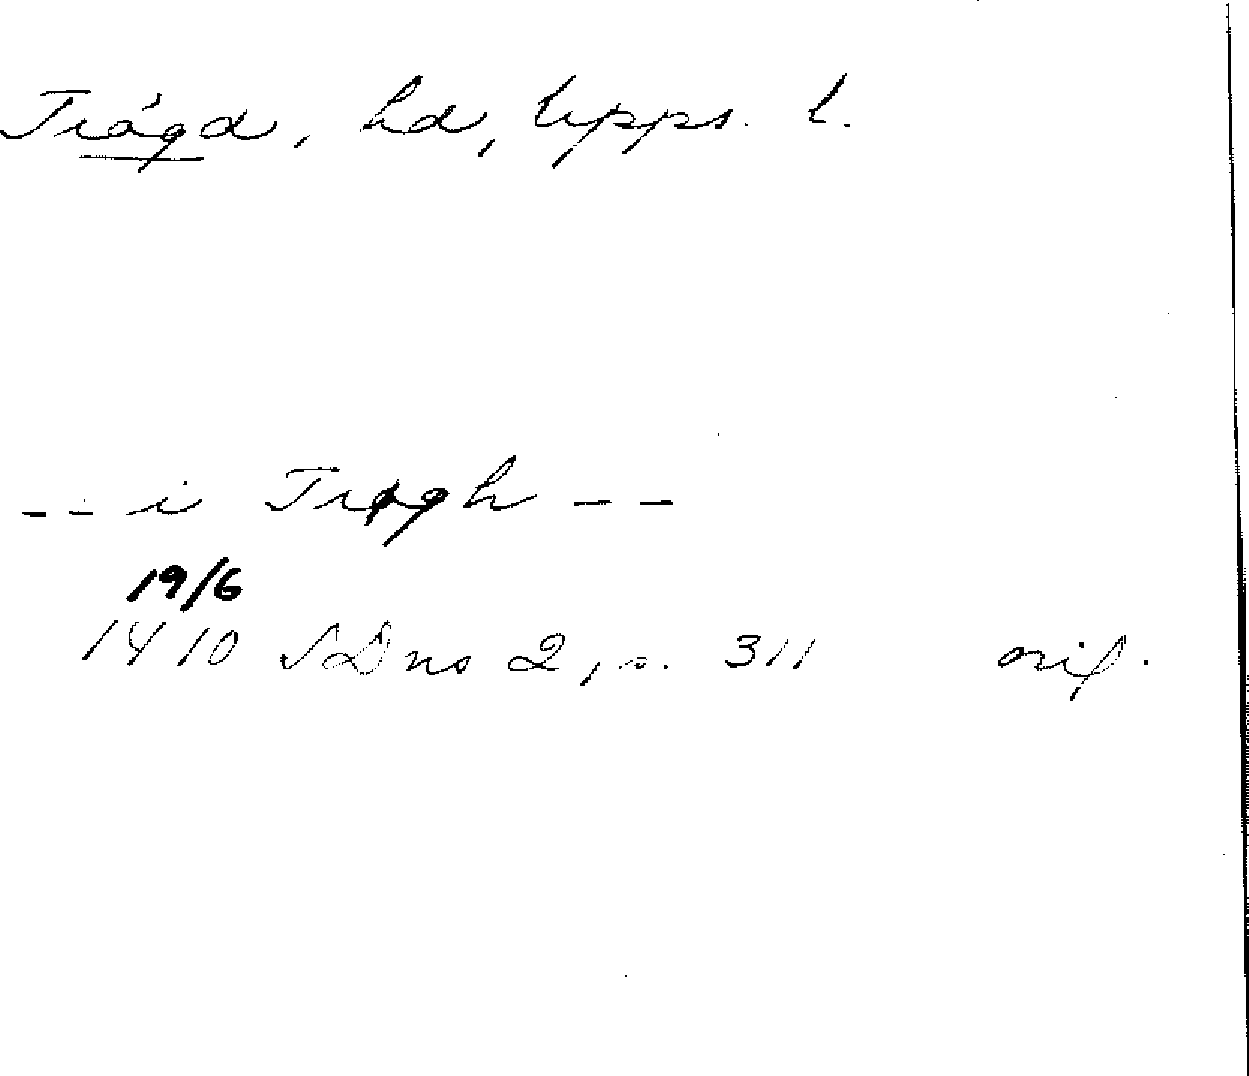 Trögd, hd, Upps. l.
-- i Trøgh --
19/6
1410 SDns 2, s. 311 orig.